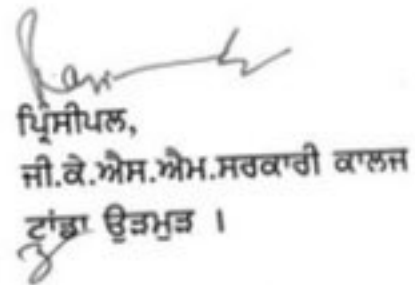 ਪ੍ਰਿੰਸੀਪਲ,
ਜੀ.ਕੇ.ਐਸ.ਐਮ.ਸਰਕਾਰੀ ਕਾਲਜ
ਟਾਂਡਾ ਉੜਮੁੜ ।